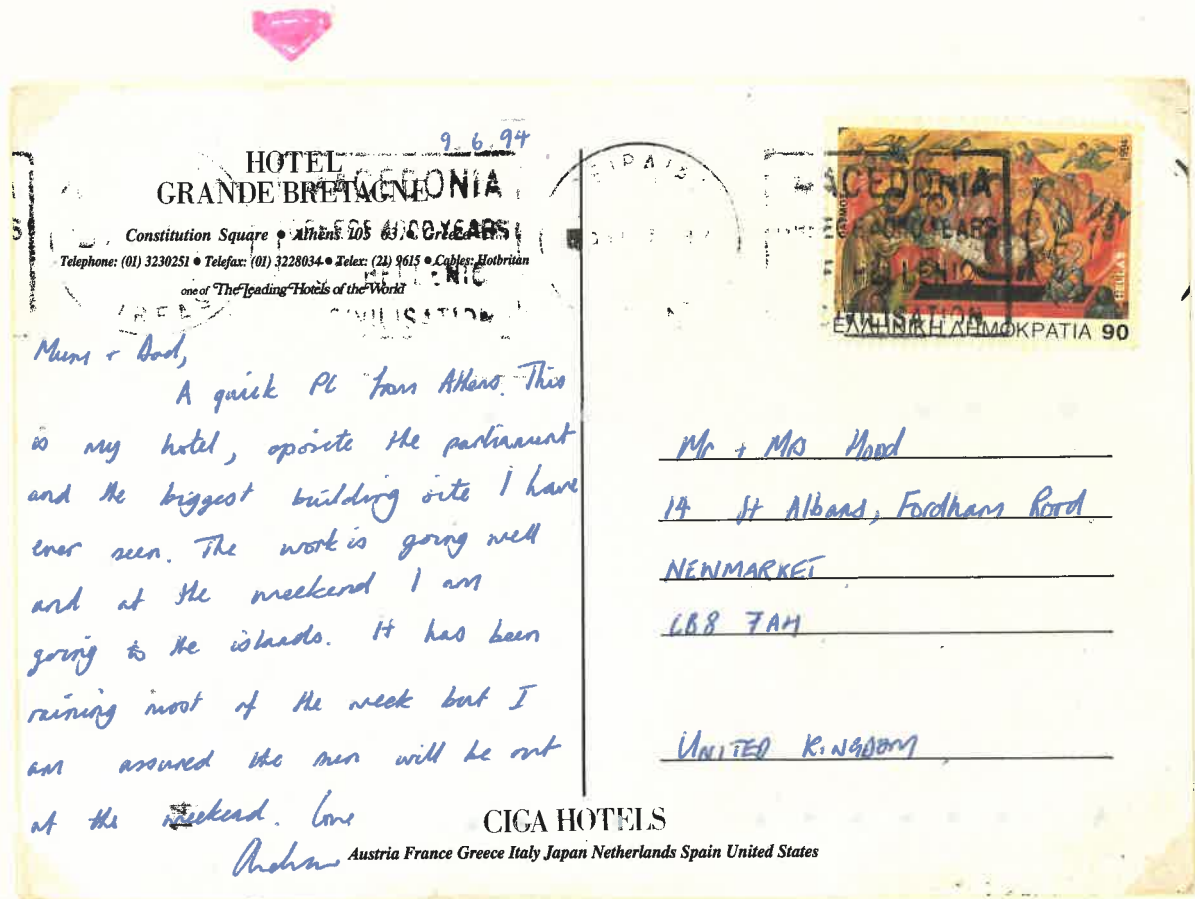 9.6.94
HOTEL
GRANDE BRETAGNE
Constitution Square • Athens 105 63 • Greece
Telephone: (01) 3230251 • Telefax: (01) 3228034 • Telex: (21) 9615 • Cables: Hotbritan
one of The Leading Hotels of the World
MACEDONIA
4000 YEARS
HELLENIC
CIVILISATION
Mum + Dad,
A quick PC from Athens. This
is my hotel, oposite the parliament
and the biggest building site I have
ever seen. The work is going well
and at the weekend I am
going to the islands. It has been
raining most of the week but I
am assured the sun will be out
at the weekend. Love
Andrew
CEDONIA
YEARS
CIVILISATION
1994
HELLAS
ΕΛΛΗΝΙΚΗ ΔΗΜΟΚΡΑΤΙΑ 90
Mr + Mrs Hood
14 St Albans, Fordham Road
NEWMARKET
CB8 7AH
UNITED KINGDOM
CIGA HOTELS
Austria France Greece Italy Japan Netherlands Spain United States